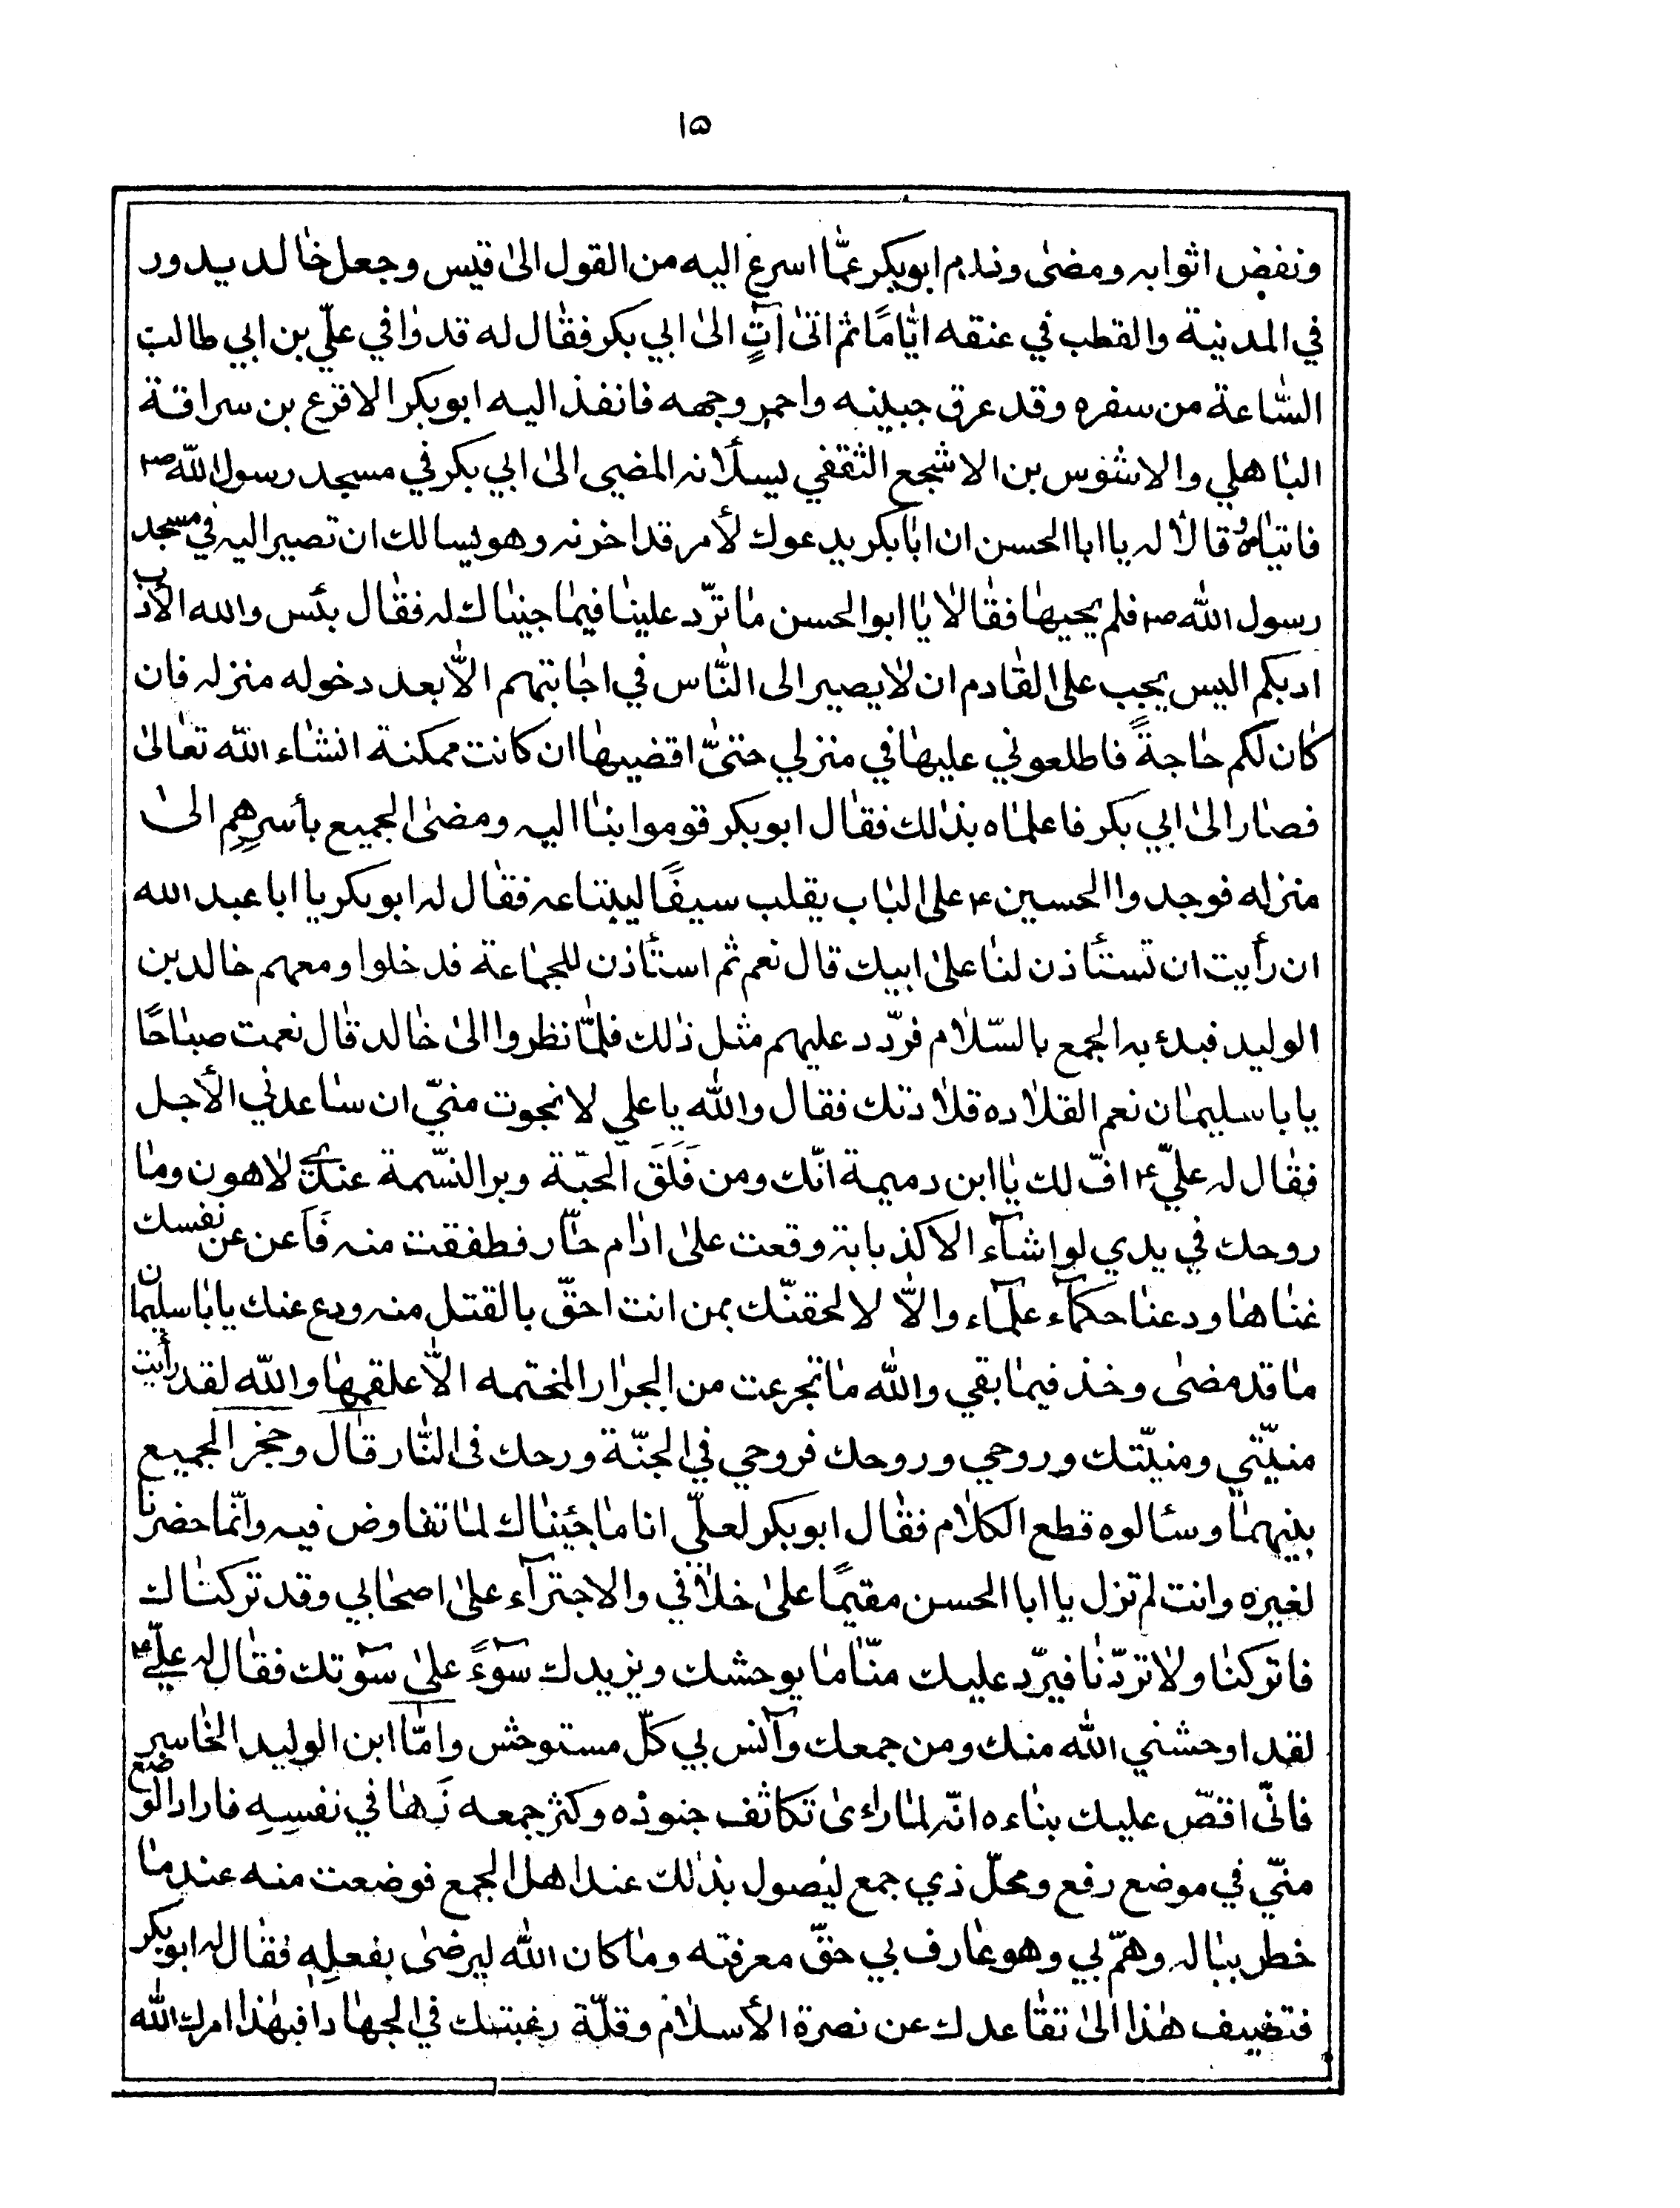 ١٥
ونفض اثوابه ومضىٰ وندم ابوبكر عمّا اسرع اليه من القول الىٰ قيس وجعل خالد يدور
في المدينة والقطب في عنقه ايّامًا ثم اتىٰ آتٍ الىٰ ابي بكر فقال له قد وافي علىّ بن ابي طالب
السّاعة من سفره وقد عرق جبينه واحمر وجهه فانفذ اليه ابوبكر الاقرع بن سراقة
الباهلي والاشوس بن الاشجع الثقفي يسألانه المضي الىٰ ابي بكر في مسجد رسول الله ص
فاتياه وقالا له يا ابا الحسن ان ابابكر يدعوك لأمر قد احزنه وهو يسالك ان تصير اليه في مسجد
رسول الله ص فلم يجبهما فقالا يا ابو الحسن ما تردّ علينا فيما جيناك له فقال بئس والله الأدب
ادبكم اليس يجب على القادم ان لا يصير الى النّاس في اجابتهم الّا بعد دخوله منزله فان
كان لكم حاجةً فاطلعوني عليها في منزلي حتىّ اقضيها ان كانت ممكنة انشاء الله تعالىٰ
فصارا الىٰ ابي بكر فاعلماه بذلك فقال ابوبكر قوموا بنا اليه ومضىٰ الجميع بأسرهم الىٰ
منزله فوجدوا الحسين ع على الباب يقلب سيفًا ليبتاعه فقال له ابوبكر يا ابا عبد الله
ان رأيت ان تستأذن لنا علىٰ ابيك قال نعم ثم استأذن للجماعة فدخلوا ومعهم خالد بن
الوليد فبدء به الجمع بالسّلام فردّد عليهم مثل ذلك فلمّا نظروا الىٰ خالد قال نعمت صباحًا
يا باسليمان نعم القلاده قلادتك فقال والله يا علي لا نجوت منيّ ان ساعدني الأجل
فقال له عليّ ع افّ لك يا ابن دميمة انّك ومن فَلَقَ الحبّة وبر النسّمة عندي لاهون وما
روحك في يدي لو اشآء الا كذبابة وقعت علىٰ ادام حارّ فطفقت منه فَاَعن عن نفسك
غناها ودعنا حكمآء علمآء والّا لا لحقنّك بمن انت احقّ بالقتل منه ودع عنك يا باسليمان
ما قد مضىٰ وخذ فيما بقي والله ما تجرعت من الجرار المختمه الّا علقمها والله لقد رأيت
منيّتي ومنيّتك وروحي وروحك فروحي في الجنّة ورحك في النّار قال وحجز الجميع
بينهما وسئالوه قطع الكلام فقال ابوبكر لعليّ انا ما جئناك لما تفاوض فيه وانّما حضرنا
لغيره وانت لم تزل يا ابا الحسن مقيمًا علىٰ خلافي والاجترآء علىٰ اصحابي وقد تركناك
فاتركنا ولا تردّنا فيردّ عليك منّا ما يوحشك ويزيدك سوءً علىٰ سوٓتك فقال له عليّ ع
لقد اوحشني الله منك ومن جمعك وآنس بي كلّ مستوحش وامّا ابن الوليد الخاسر
فانّى اقصّ عليك بناءه انّه لما رأىٰ تكاثف جنوده وكثر جمعه زَها في نفسِهِ فاراد الوضع
منّي في موضع رفع ومحلّ ذي جمع ليصول بذلك عند اهل الجمع فوضعت منه عند ما
خطر بباله وهمّ بي وهو عارف بي حقّ معرفته وما كان الله ليرضىٰ بفعلِهِ فقال له ابوبكر
فتضيف هذا الىٰ تقاعدك عن نصرة الأسلام وقلّة رغبتك في الجهاد افبهٰذا امرك الله